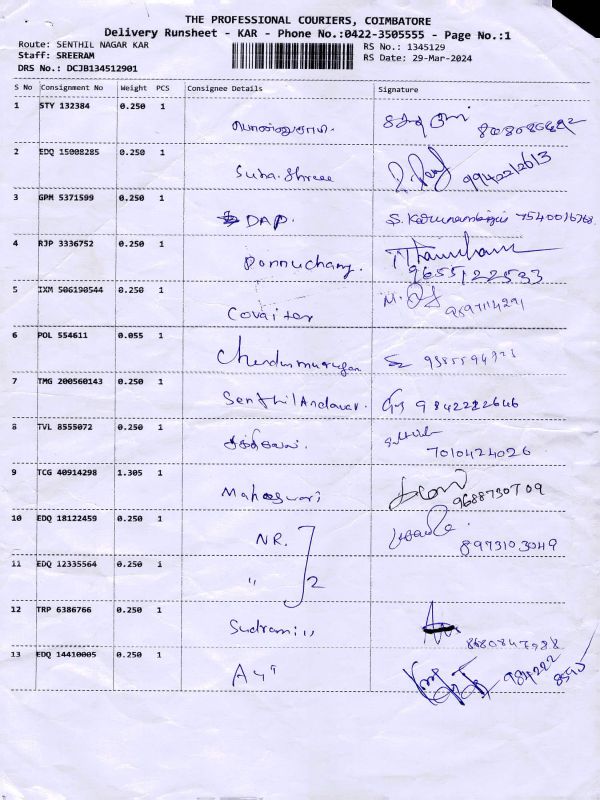 THE PROFESSIONAL COURIERS, COIMBATORE
Delivery Runsheet - KAR - Phone No.:0422-3505555 - Page No.:1
Route: SENTHIL NAGAR KAR RS No.: 1345129
Staff: SREERAM RS Date: 29-Mar-2024
DRS No.: DCJB134512901
S No Consignment No Weight PCS Consignee Details Signature
1 STY 132384 0.250 1
2 EDQ 15008285 0.250 1 Suha.Shree 9940212613
3 GPM 5371599 0.250 1 DAP. S. 7540016768
4 RJP 3336752 0.250 1 Ponnuchamy.
9655122533
5 IXM 506190544 0.250 1 Covaitor M.
6 POL 554611 0.055 1 Chendurmurugan
7 TMG 200560143 0.250 1 Senthil Andavar. 9842222646
8 TVL 8555072 0.250 1 சக்திவேல்.
7010424026
9 TCG 40914298 1.305 1 Maheswari
9688730709
10 EDQ 18122459 0.250 1 NR.
8973103049
11 EDQ 12335564 0.250 1 " 2
12 TRP 6386766 0.250 1
13 EDQ 14410005 0.250 1